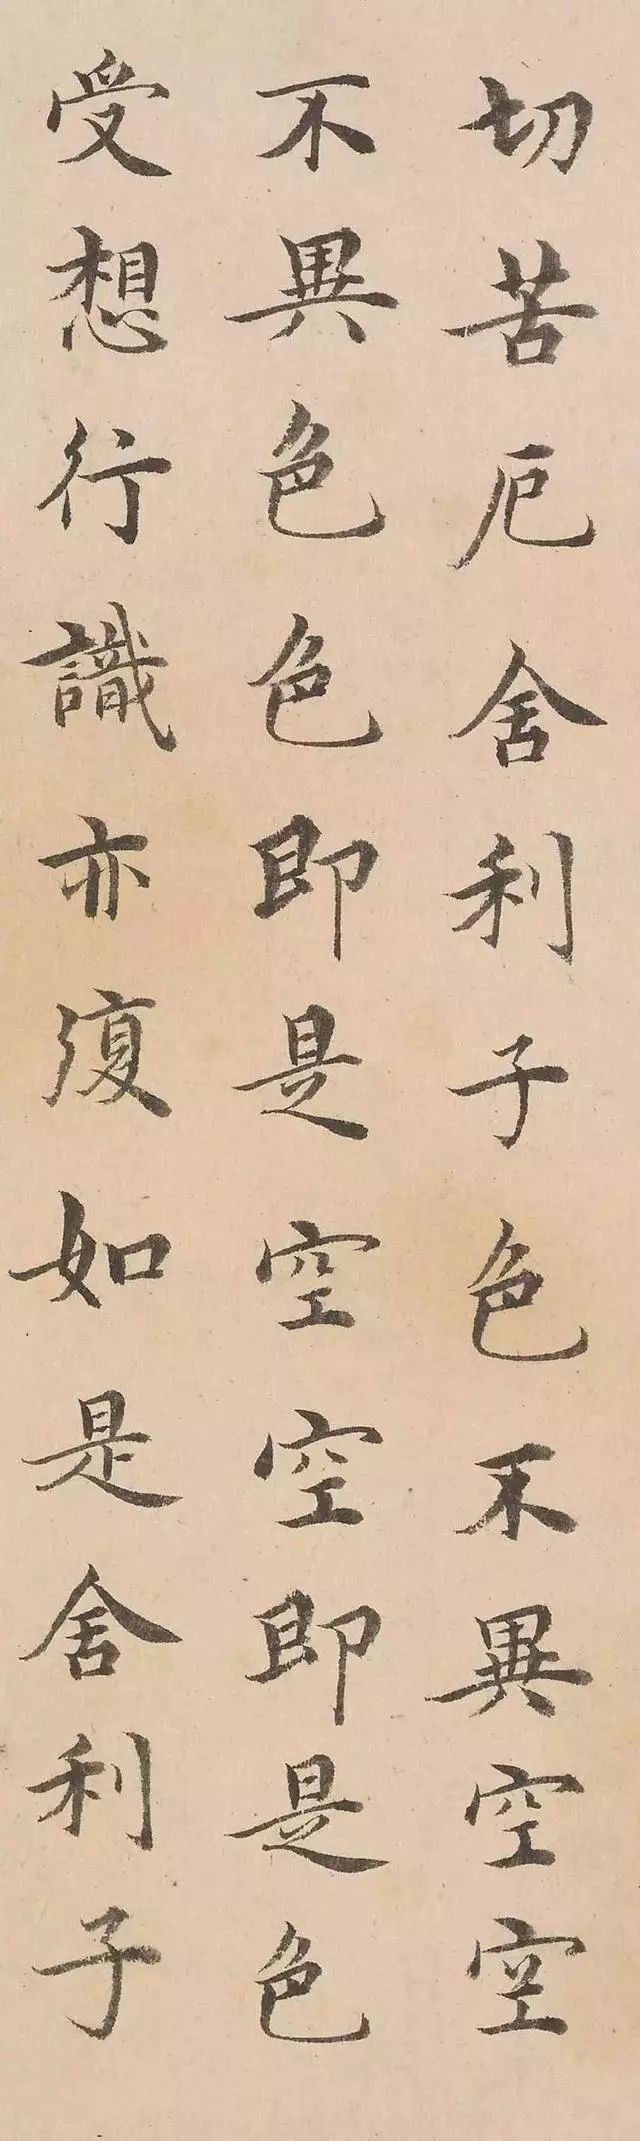 切苦厄舍利子色不異空空
不異色色即是空空即是色
受想行識亦復如是舍利子